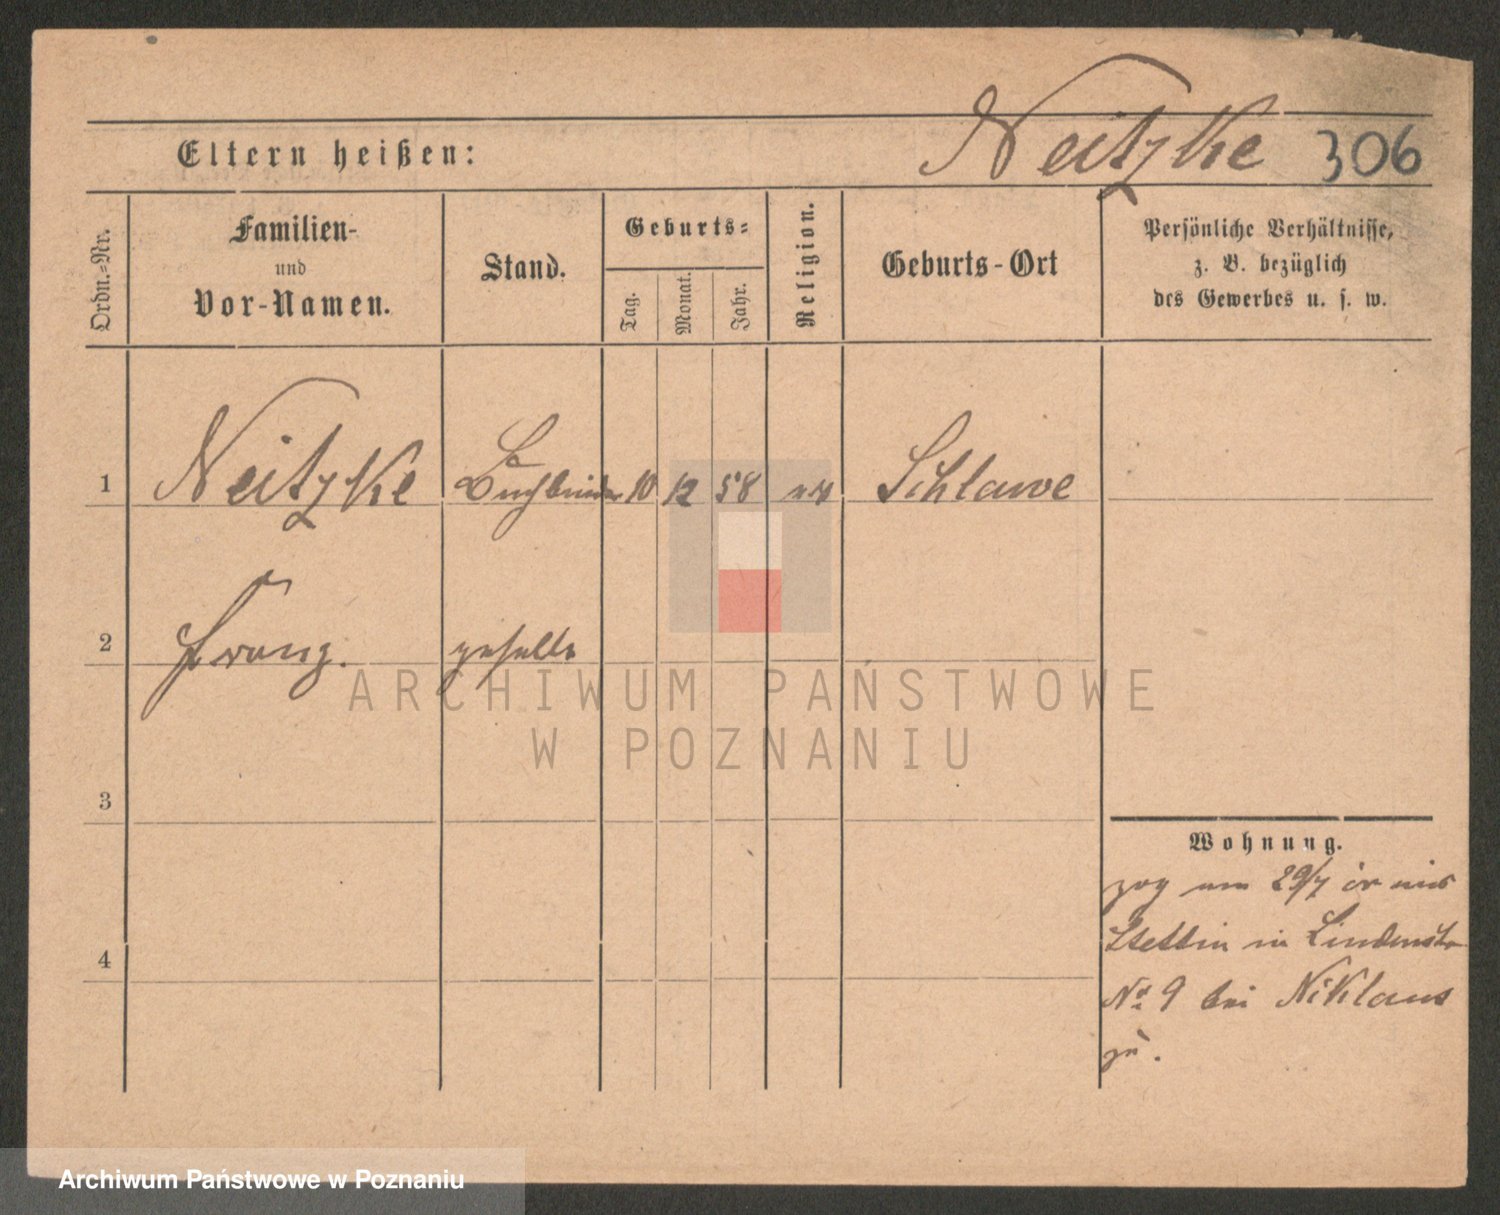 Neitzke 306
Eltern heißen:
Ordn.=Nr.
Familien-
und
Vor-Namen.
Stand.
Geburts=
Tag.
Monat.
Jahr.
Religion.
Geburts-Ort
Persönliche Verhältnisse,
z. B. bezüglich
des Gewerbes u. s. w.
1 Neitzke Buchbinder 10 12 58 Schlawe
2 Franz. geselle
ARCHIWUM PAŃSTWOWE
W POZNANIU
3
4
Wohnung.
zog am 29/7 cr aus
Stettin in Lindenstr
No 9 bei Niklaus
zu.
Archiwum Państwowe w Poznaniu